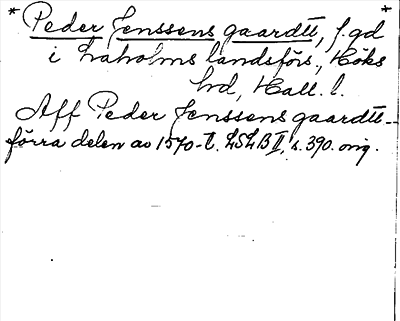 * Peder Jenssens gaardtt, f. gd *
i Laholms landsförs., Höks
hd, Hall. l.
Aff Peder Jenssens gaardtt --
förra delen av 1570-t. LSLB II, s. 390. orig.